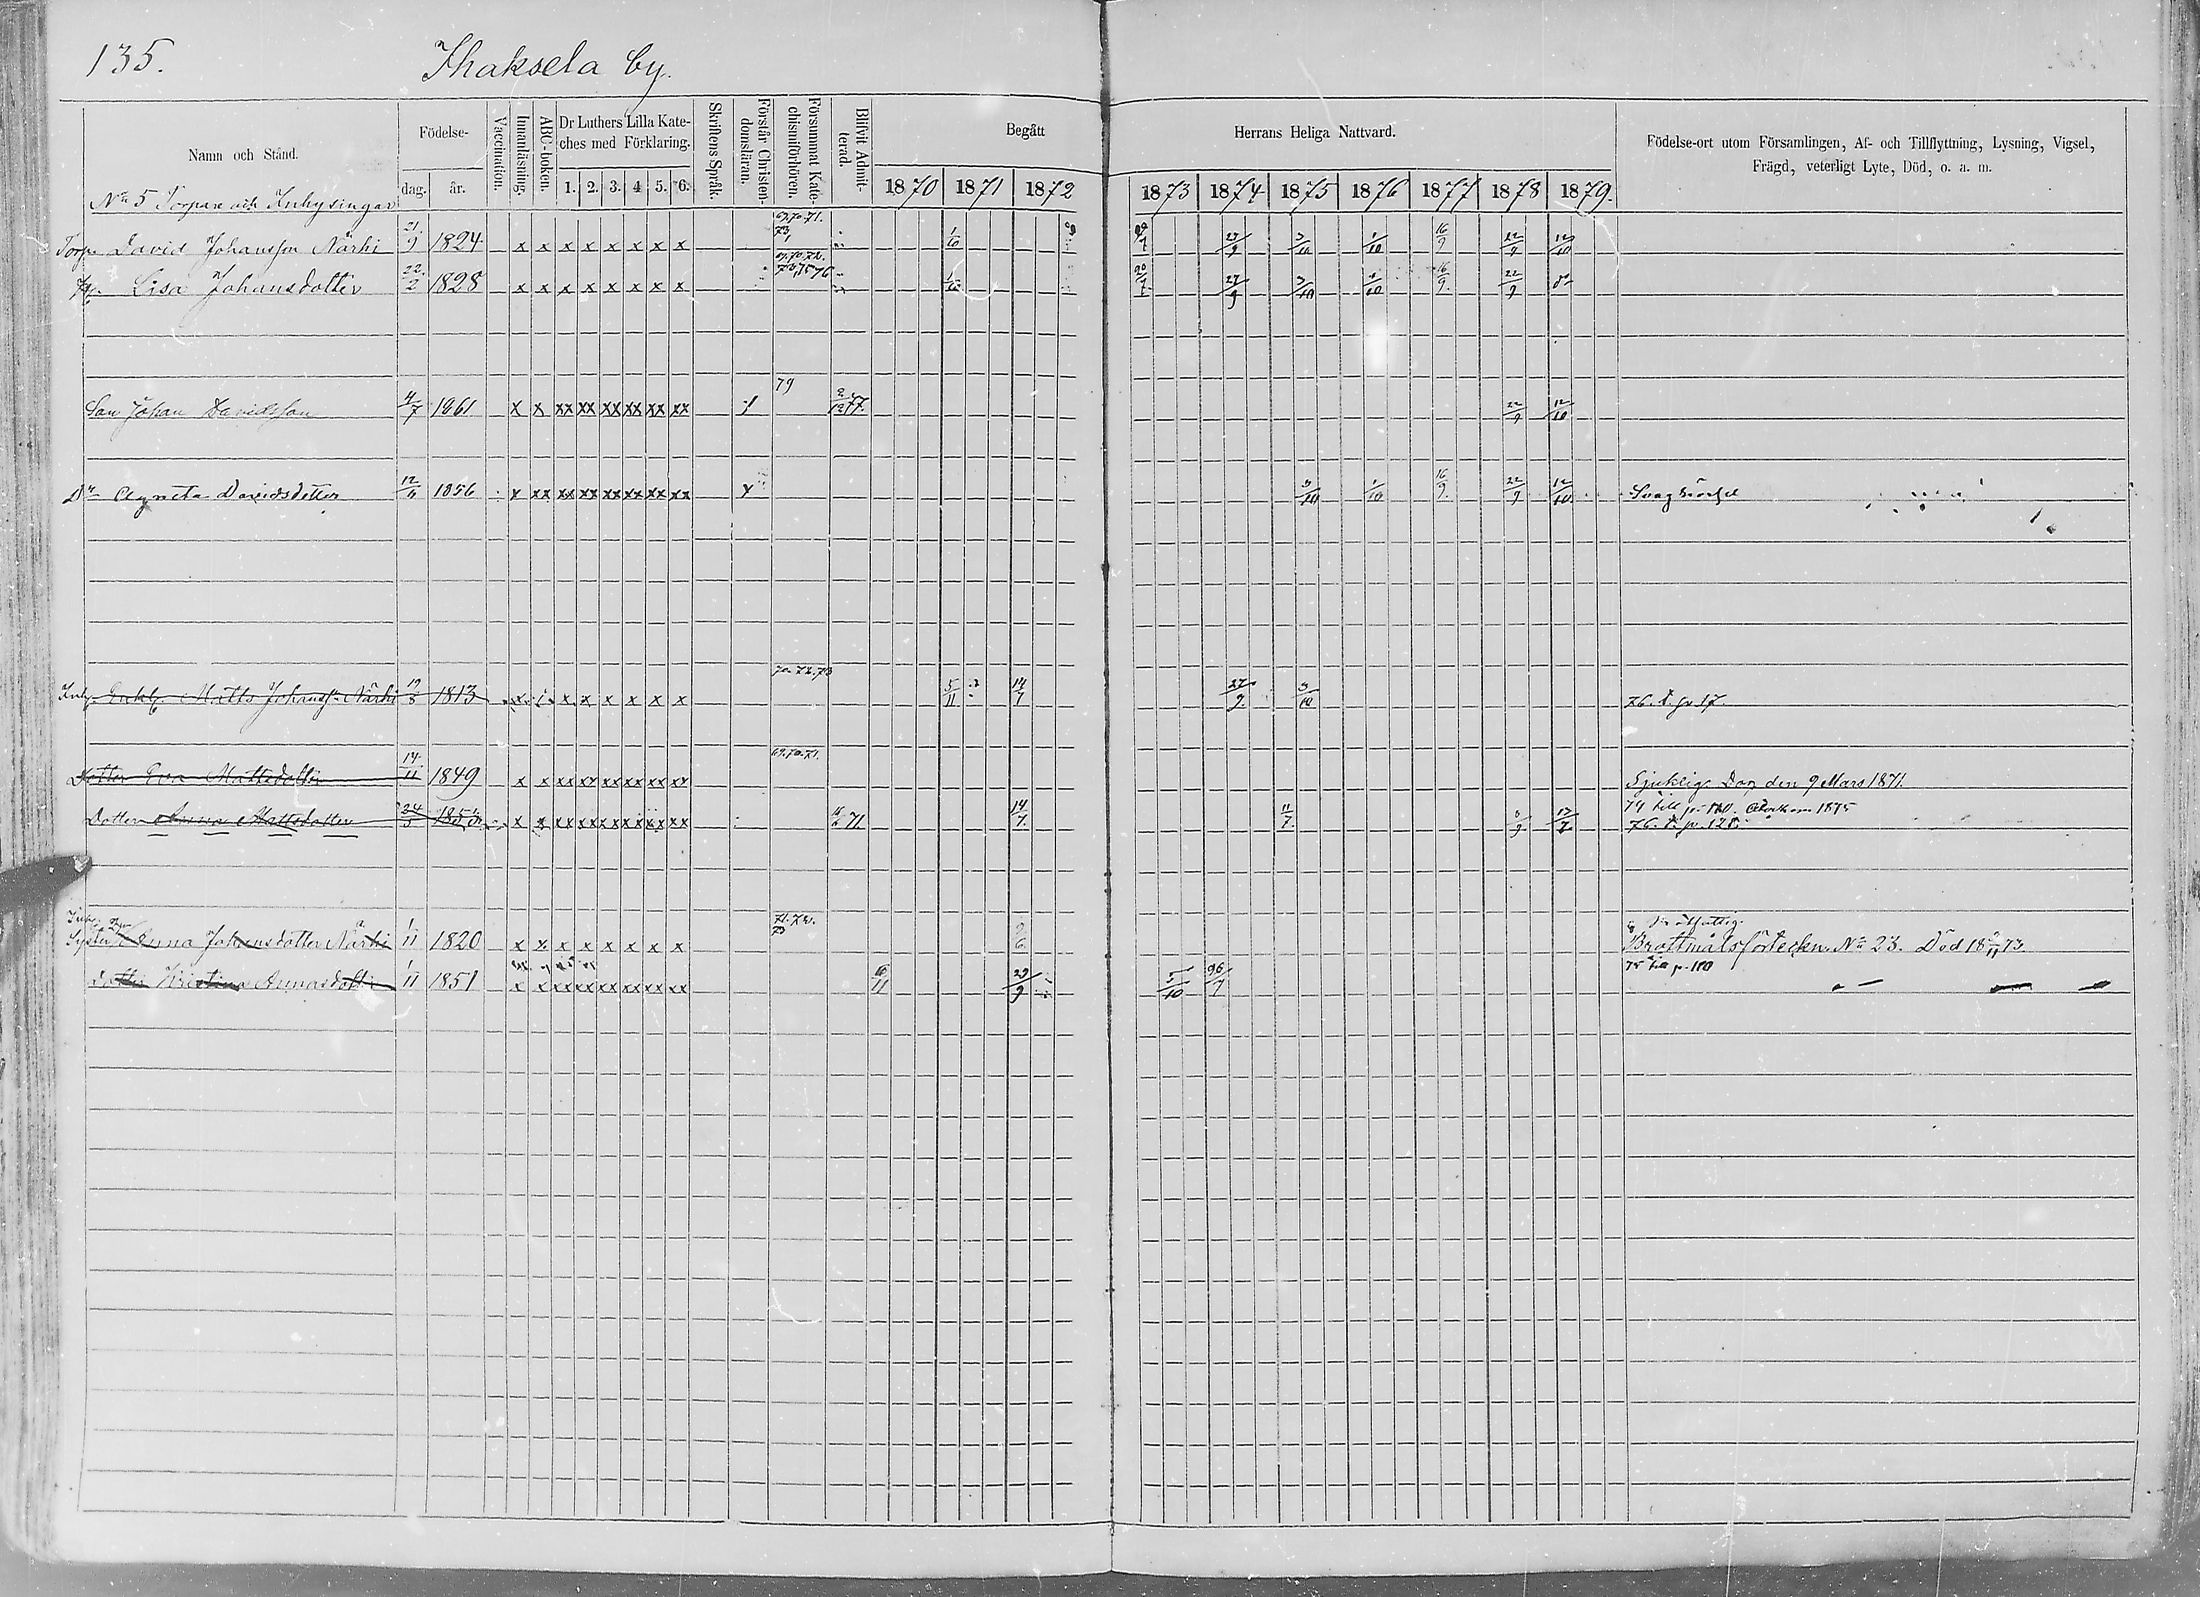 135. Ihaksela by.
Namn och Stånd. Födelse- dag. år. Vaccination. Innanläsning. ABC-boken. Dr Luthers Lilla Kateches med Förklaring. 1. 2. 3. 4 5. 6. Skriftens Språk. Förstår Christendomsläran. Försummat Katechismiförhören. Blifvit Admitterad. Begått Herrans Heliga Nattvard. Födelse-ort utom Församlingen, Af- och Tillflyttning, Lysning, Vigsel, Frägd, veterligt Lyte, Död, o. a. m.
1870 1871 1872 1873 1874 1875 1876 1877 1878 1879.
No 5 Torpare och Inhysingar
Torp. David Johansson Närhi 21/9 1824 x x x x x x x x 69.70.71. 73, 1/10 27/9 3/10 1/10 16/9 22/9 12/10
Lisa Johansdotter 22/2 1828 x x x x x x x x 1/10 20/7 27/9 3/10 1/10 16/9 22/9
Son Johan Davidsson 4/7 1861 x x xx xx xx xx xx xx 79 2/12 77. 22/9 12/10
Dr Agneta Davidsdotter 12/11 1856 x xx xx xx xx xx xx xx x 3/10 1/10 16/9 22/9 12/10
Inh. Enkl. Matts Johanss. Närhi 19/8 1813 x x x x x x x 70.72.73 5/11 14/7 27/9 3/10 76. t. p. 17.
Dotter Eva Mattsdotter 14/11 1849 x x xx xx xx xx xx xx 69.70.71. Sjuklig. Dog den 9 Mars 1871.
Dotter Anna Mattsdotter 24/5 x x xx xx xx xx xx xx 71. 14/7. 11/7. 74 till p. 120. Återkom 1875
76. t. p. 128.
Inh.
Syster Anna Johansdotter Närhi 1/11 1820 x x x x x x x x 71.72. 73 Brottmålsförteckn. No 23. Död 18 /11 73.
dotter Kristina Annasdotter 1/11 1851 x x xx xx xx xx xx xx 29/9 5/10 75 till p. 110